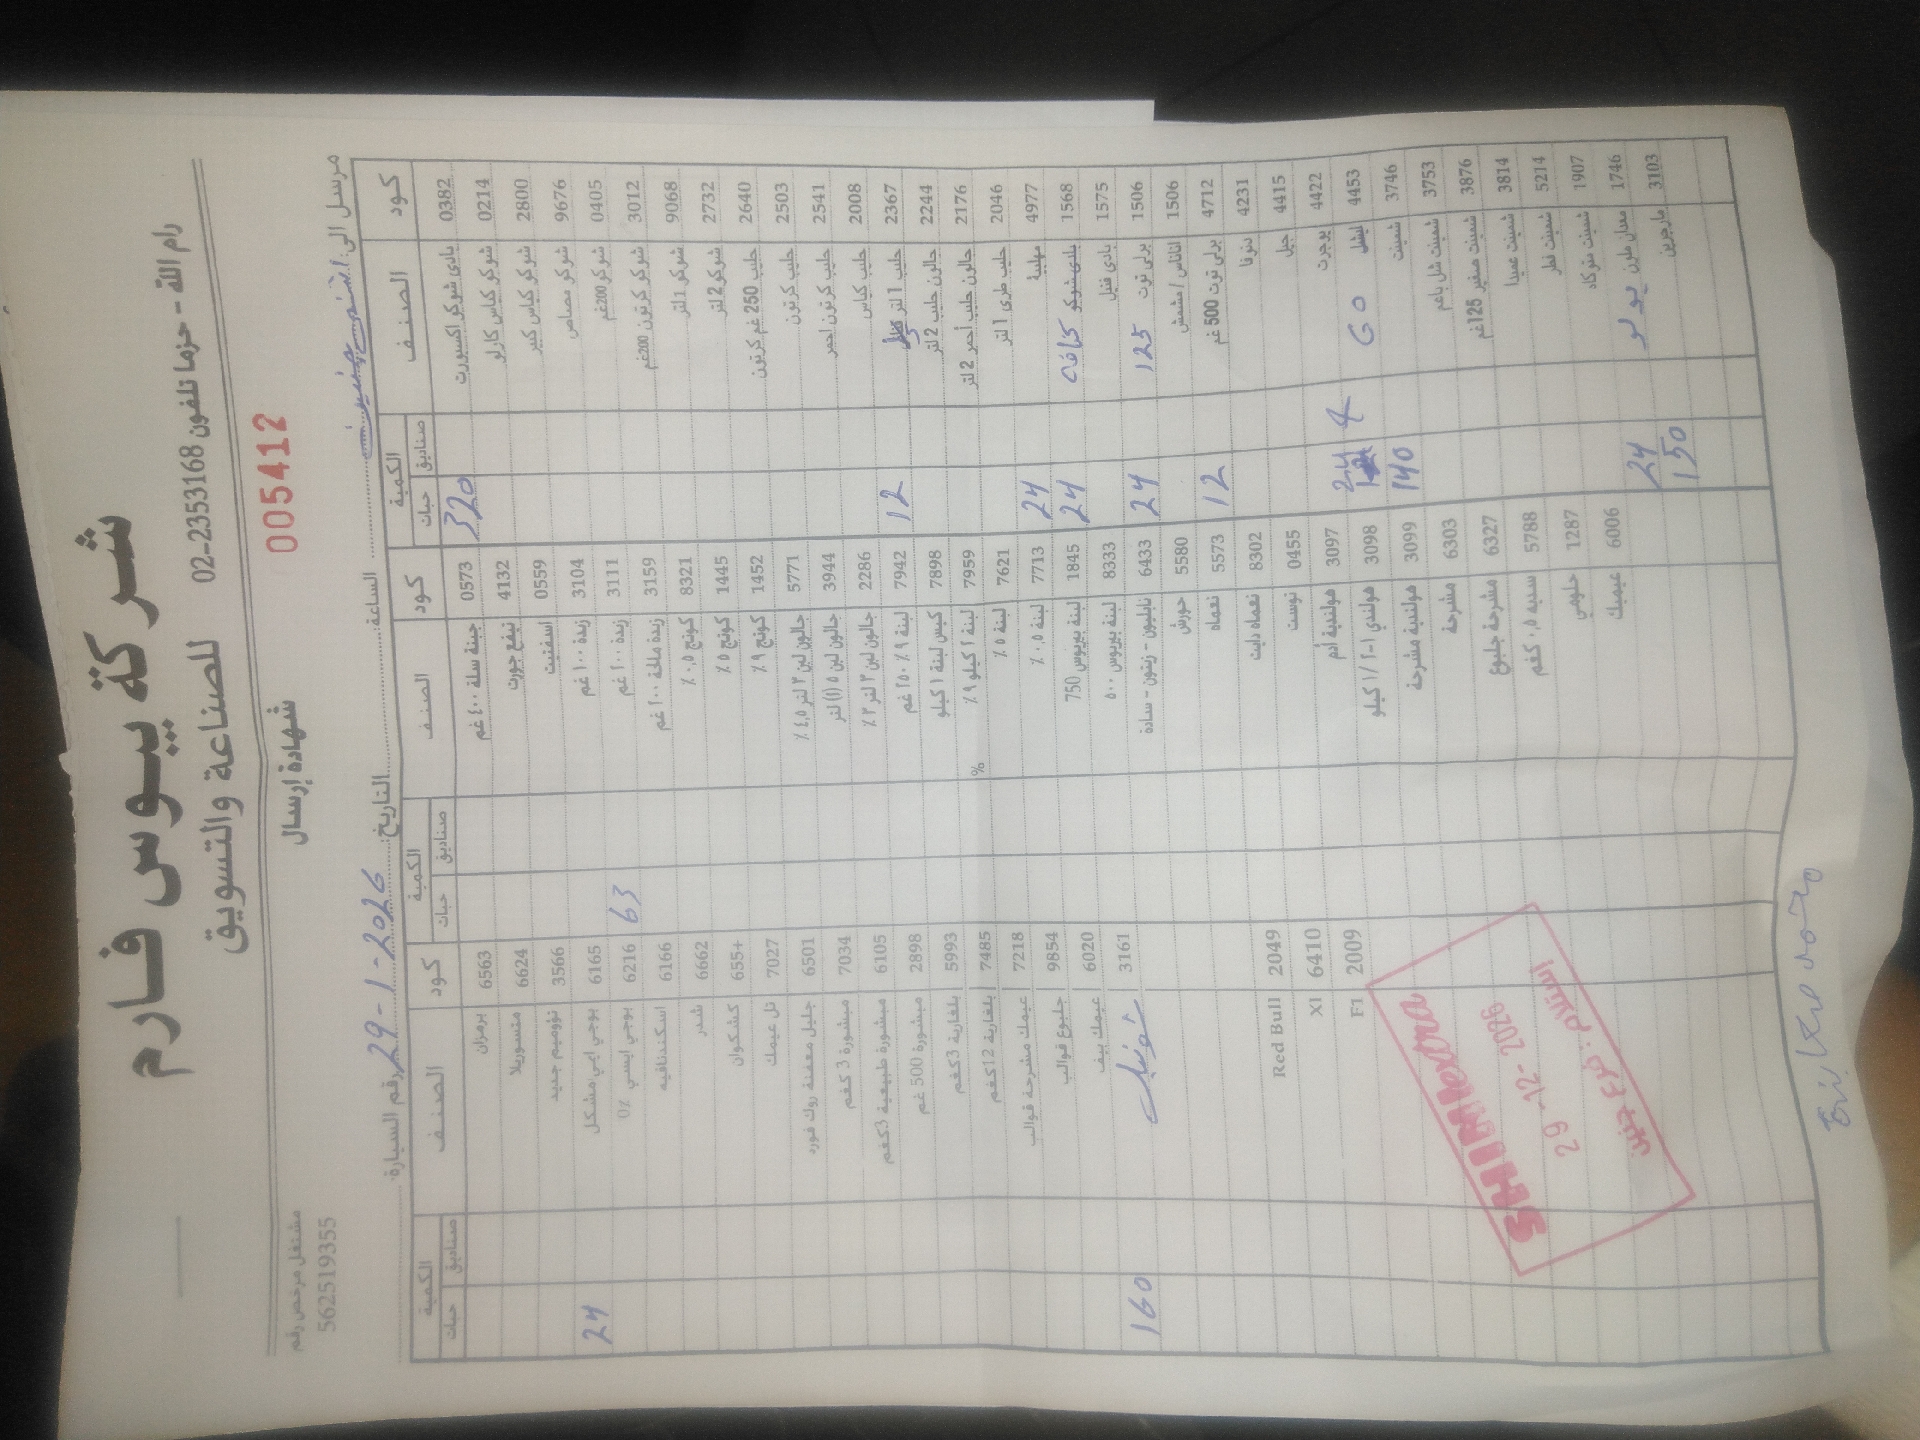 شركة بيوس فارم
للصناعة والتسويق
رام الله - حزما تلفون 02-2353168
مشتغل مرخص رقم
562519355
شهادة إرسال
005412
مرسل الى: الساعة: التاريخ: 29-1-2026 رقم السيارة:
كود الصنف الكمية
صناديق حبات
0382 بادي شوكو اكسبورت 320
0214 شوكو كياس كارلو
2800 شوكو كياس كبير
9676 شوكو مصاص
0405 شوكو 200غم
3012 شوكو كرتون 200غم
9068 شوكو 1 لتر
2732 شوكو 2 لتر
2640 حليب 250 غم كرتون
2503 حليب كرتون
2541 حليب كرتون احمر
2008 حليب كياس
2367 حليب 1 لتر 12
2244 جالون حليب 2 لتر
2176 جالون حليب احمر 2 لتر
2046 حليب طري 1 لتر
4977 مهلبية 24
1568 بادي شوكو كافه 24
1575 بادي فنيل
1506 برلي توت 125 24
1506 اناناس / مشمش
4712 برلي توت 500 غم 12
4231 دنوفا
4415 جيل
4422 يوجرت
4453 ليشل 60 4 24
3746 شمينت 140
3753 شمينت شل باعم
3876 شمينت صغير 125غم
3814 شمينت عميدا
5214 شمينت فطر
1907 شمينت شوكاه
1746 معدان ملون يولو 24
3103 مارجرين 150
كود الصنف الكمية
صناديق حبات
0573 جبنة سلة ٤٠٠ غم
4132 نيفع جورت
0559 اسفنيت
3104 زبدة ١٠٠ غم
3111 زبدة ٢٠٠ غم 63
3159 زبدة ملحة ٢٠٠ غم
8321 كوتج ٠,٥ ٪
1445 كوتج ٥ ٪
1452 كوتج ٩ ٪
5771 جالون لبن ٣ لتر ٤,٥ ٪
3944 جالون لبن ٥ (١) لتر
2286 جالون لبن ٣ لتر ٣ ٪
7942 لبنة ٩٪ ٢٥٠ غم
7898 كيس لبنة ١ كيلو
7959 لبنة ٢ كيلو ٩ ٪ %
7621 لبنة ٥ ٪
7713 لبنة ٠,٥ ٪
1845 لبنة بيريوس 750
8333 لبنة بيريوس ٥٠٠
6433 نابليون - زيتون - سادة
5580 حورش
5573 نعماه
8302 نعماه دايت
0455 نوست
3097 هولندية ادم
3098 هولندي ١-٢ / ١ كيلو
3099 هولندية مشرحة
6303 مشرحة
6327 مشرحة جلبوع
5788 سدبه ٠,٥ كغم
1287 حلومي
6006 عيميك
كود الصنف الكمية
صناديق حبات
6563 برمزان
6624 متسوريلا
3566 نؤوميم جديد
6165 يوجي ايسي مشكل 24
6216 يوجي ايسي 0٪
6166 اسكندنافيه
6662 شدر
655+ كشكوان
7027 تل عيمك
6501 جليل معفنة روك فورد
7034 مبشورة 3 كغم
6105 مبشورة طبيعية 3كغم
2898 مبشورة 500 غم
5993 بلغارية 3كغم
7485 بلغارية 12كغم
7218 عيمك مشرحة قوالب
9854 جلبوع قوالب
6020 عيمك بيف
3161 160
2049 Red Bull
6410 Xl
2009 F1
SHIMMexra
29-12-2026
استلام: فرع جنين